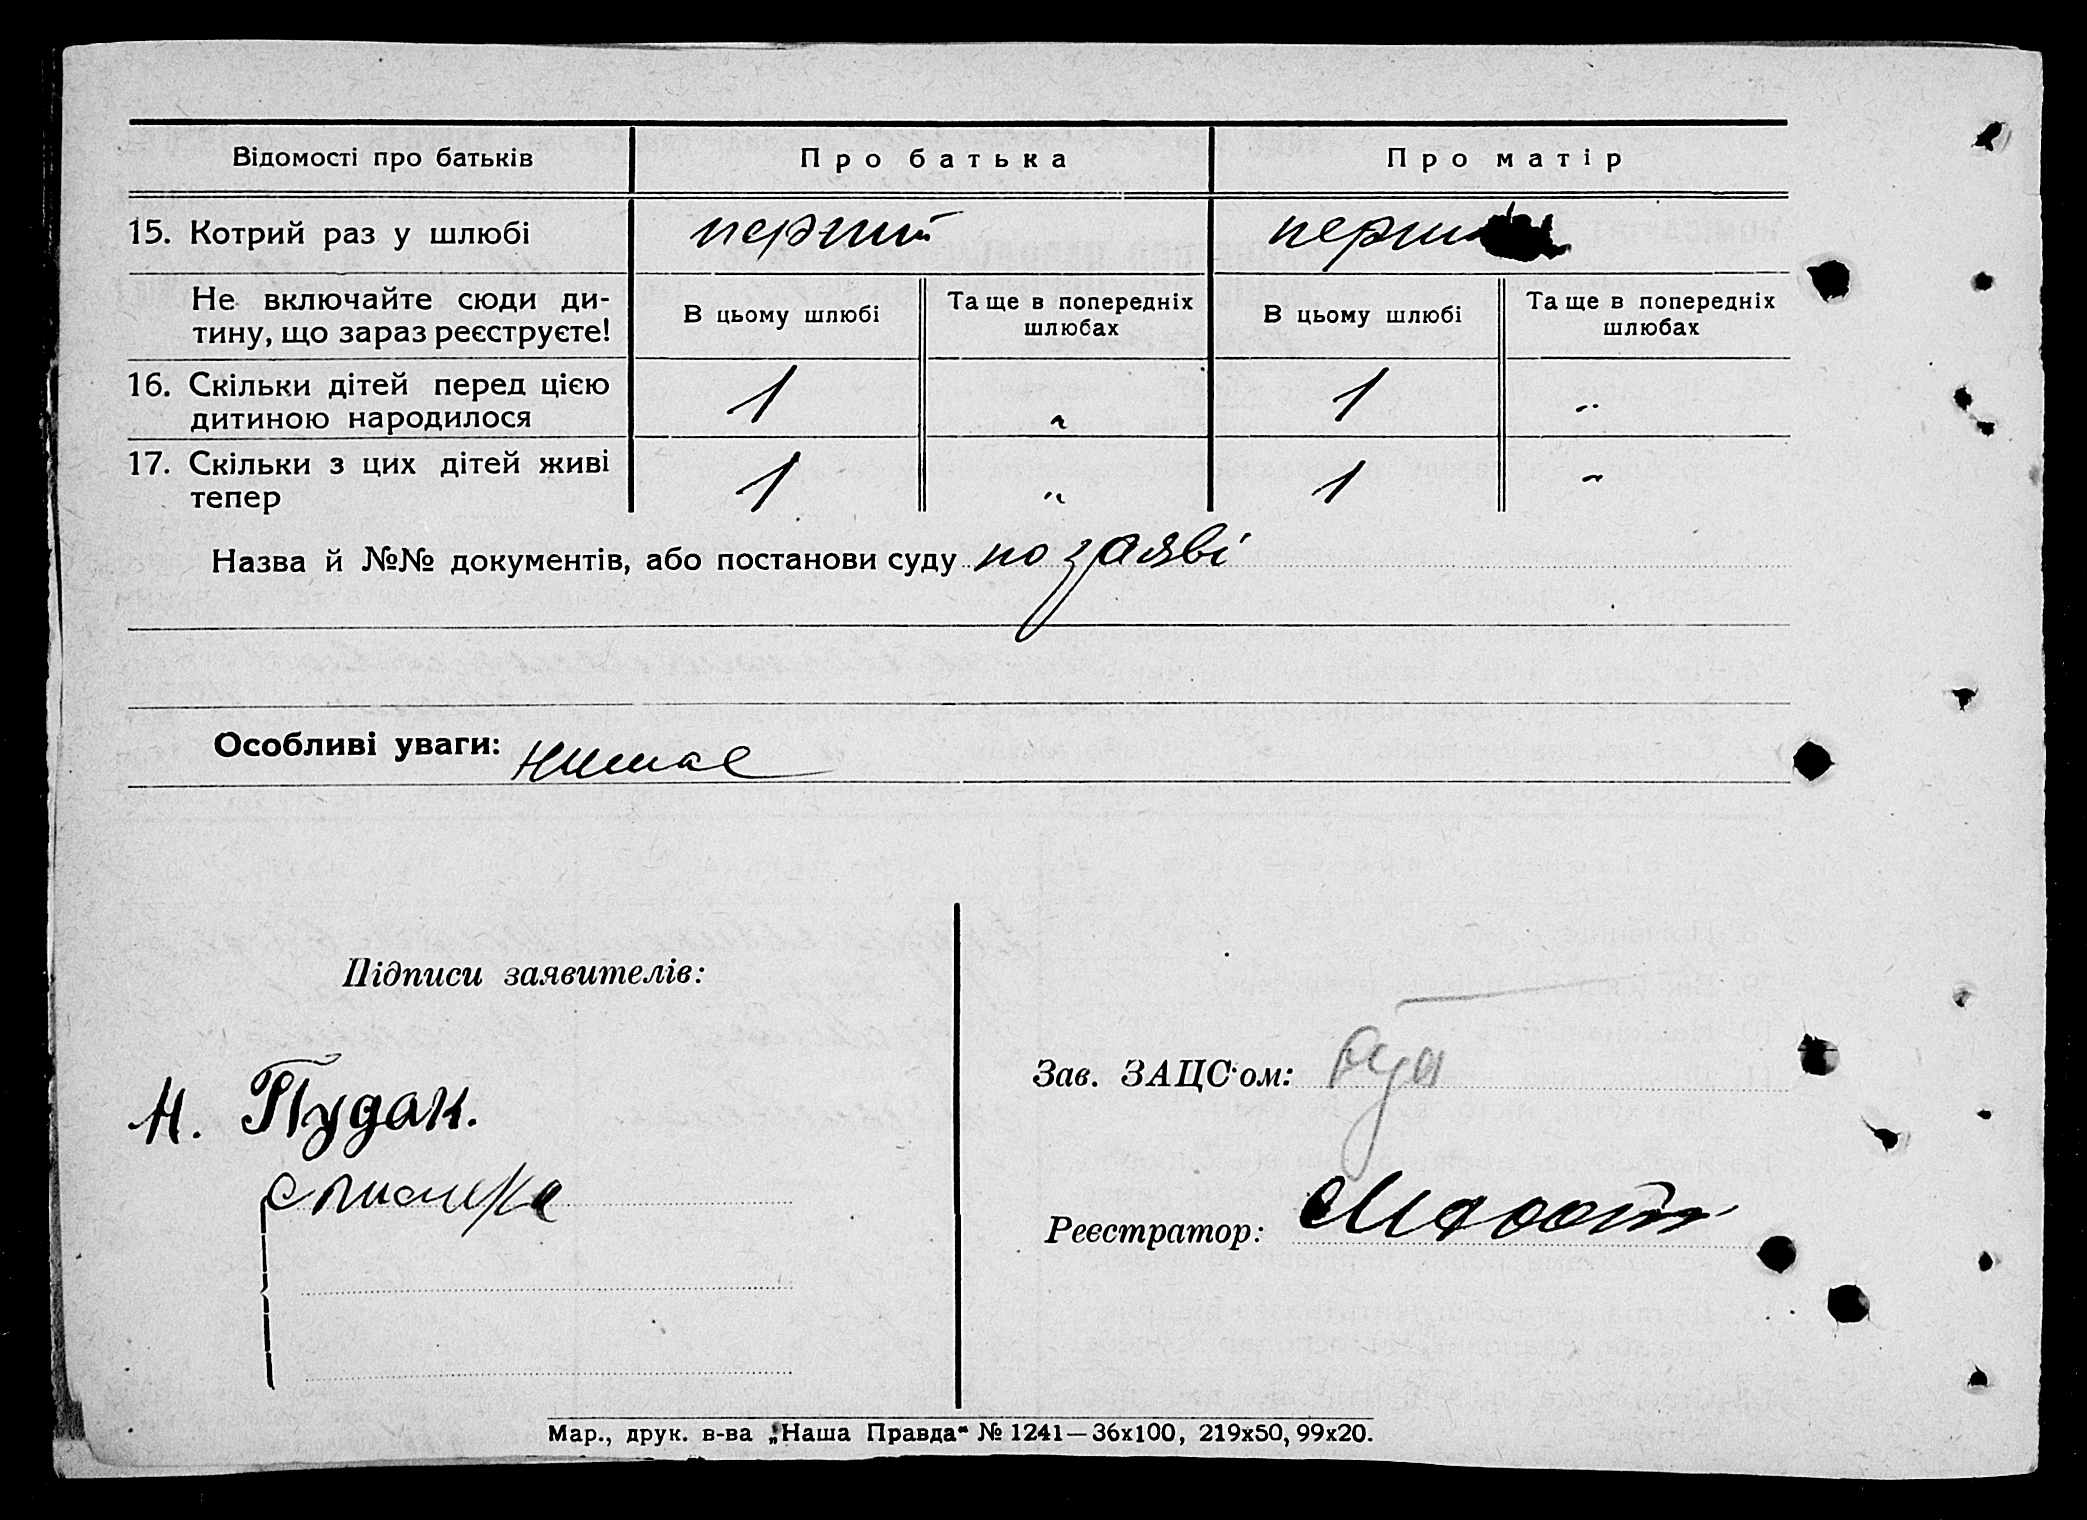 Відомості про батьків Про батька Про матір
15. Котрий раз у шлюбі перший перши
Не включайте сюди ди-
тину, що зараз реєструєте!
В цьому шлюбі Та ще в попередніх шлюбах В цьому шлюбі Та ще в попередніх шлюбах
16. Скільки дітей перед цією
дитиною народилося 1 " 1 "
17. Скільки з цих дітей живі
тепер 1 " 1 "
Назва й №№ документів, або постанови суду по заяві
Особливі уваги: нимає
Підписи заявителів:
Зав. ЗАЦС'ом:
Н. Пудан.
Реєстратор:
Мар., друк. в-ва „Наша Правда“ № 1241—36х100, 219х50, 99х20.